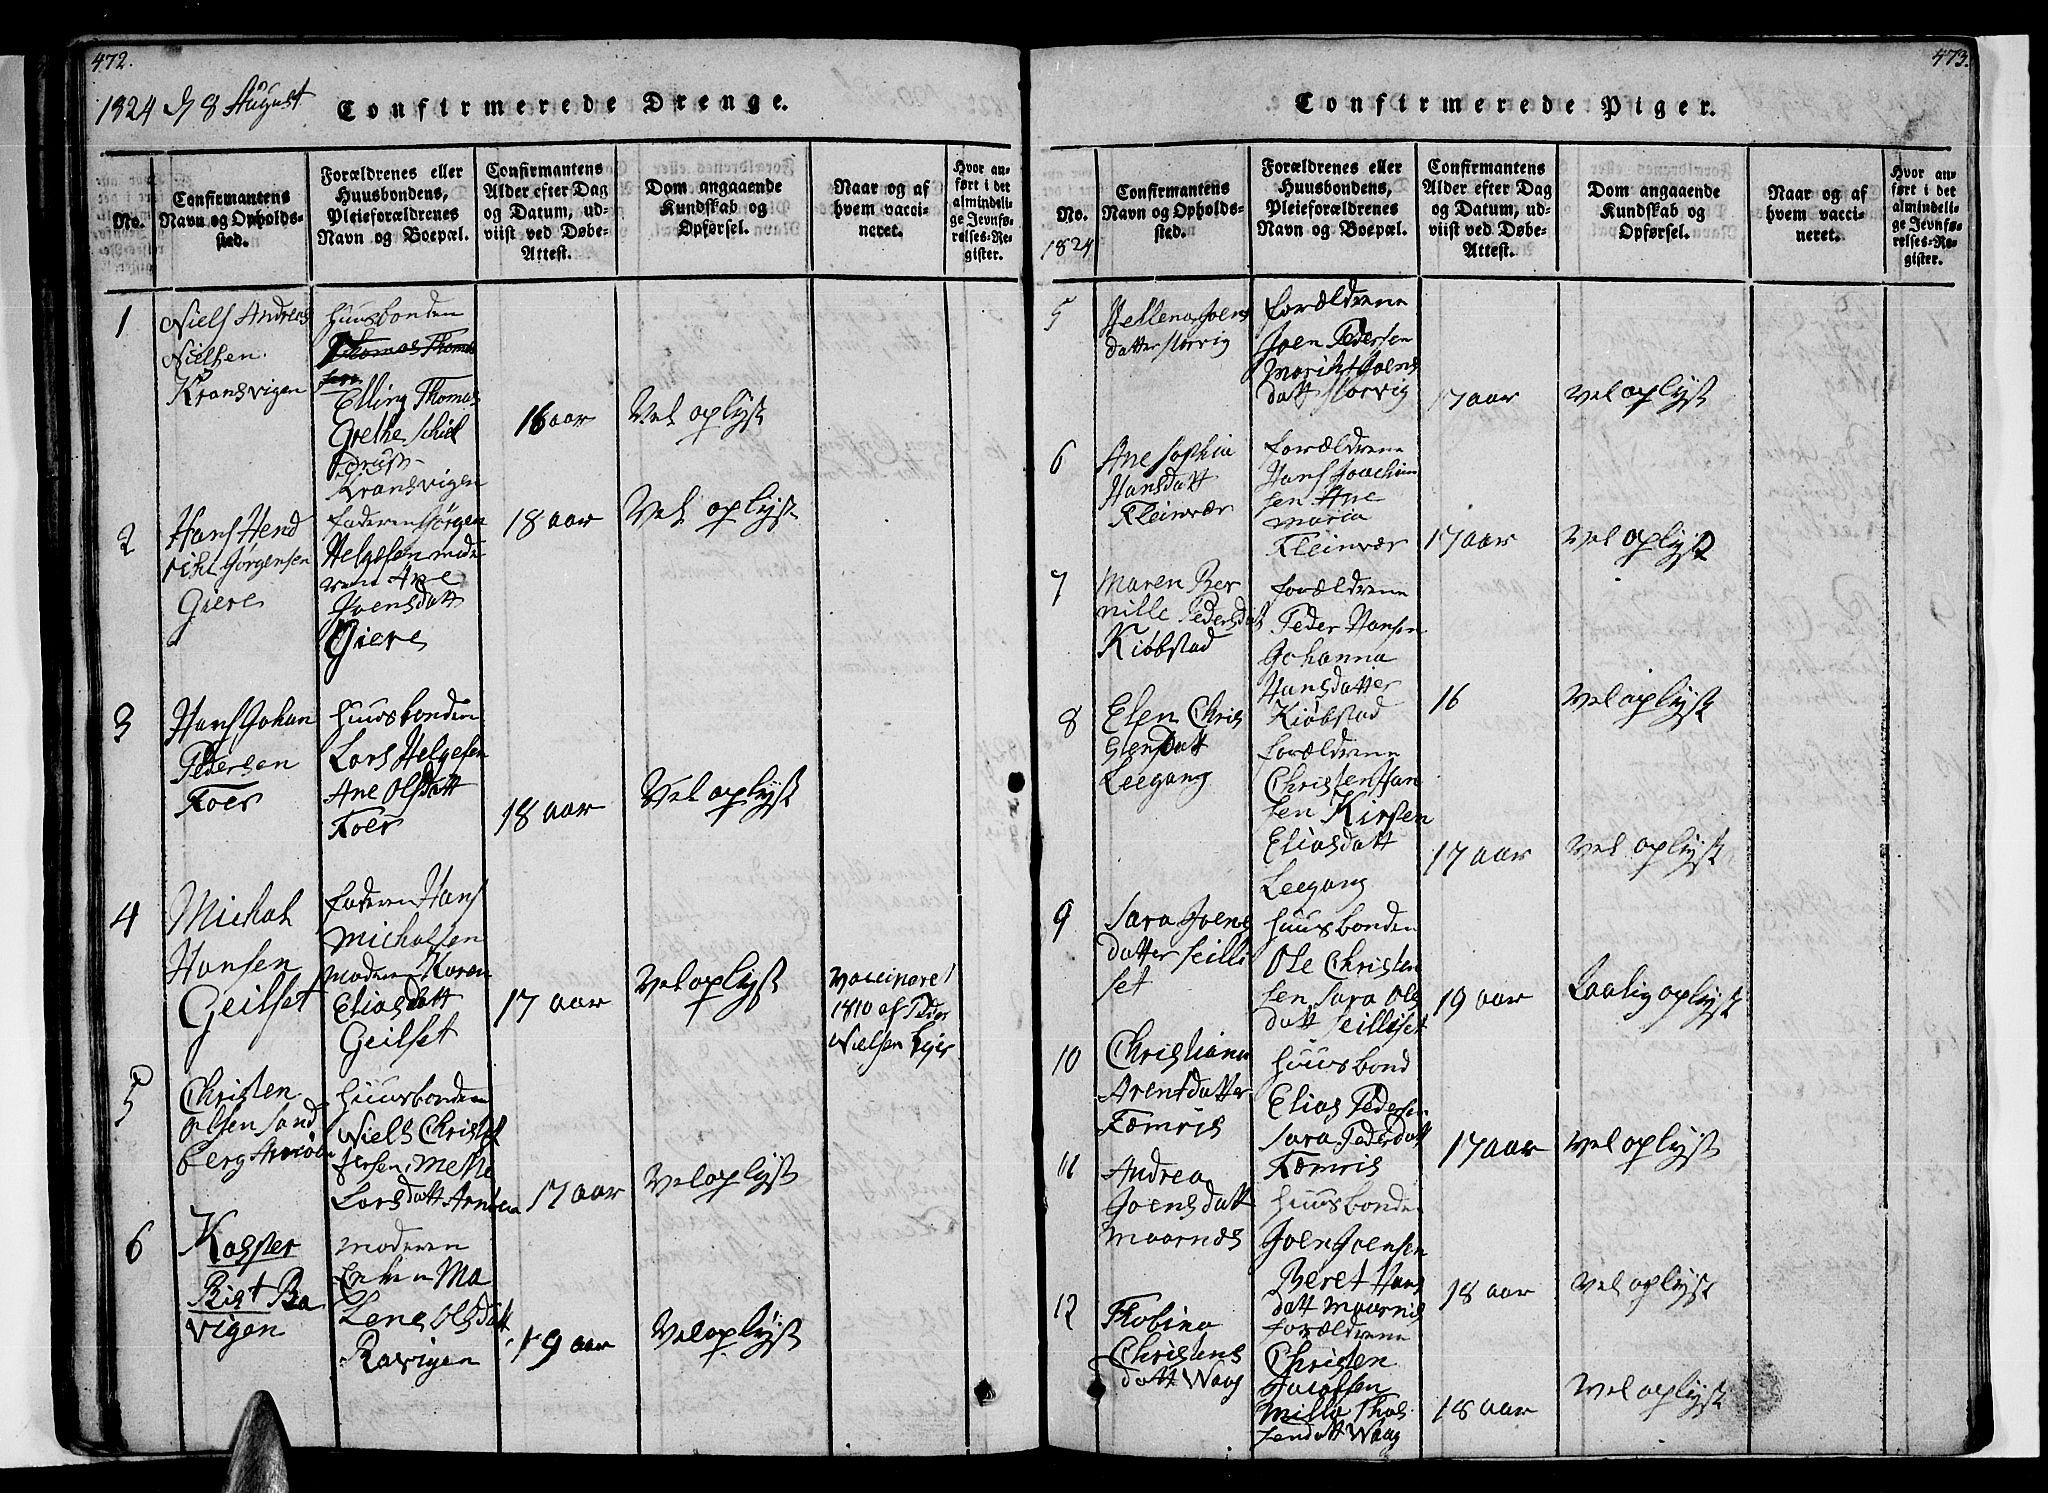 472.
1824 d 8 August
Confirmerede Drenge.
No.
Confirmantens
Navn og Opholds-
sted.
Forældrenes eller
Huusbondens,
Pleieforældrenes
Navn og Boepæl.
Confirmantens
Alder efter Dag
og Datum, ud-
viist ved Døbe-
Attest.
Dom angaaende
Kundskab og
Opførsel.
Naar og af
hvem vacci-
neret.
Hvor an-
ført i det
almindeli-
ge Jevnfø-
relses-Re-
gister.
1
Niels Andreas
Nielsen
Kransvigen
Huusbonden
Thomas Thomas
sen
Elling Thomas
Grethe Schiel
Kransvigen
16 aar
Vel oplyst
2
Hans Hend
rich Jørgensen
Giere
Faderen Jørgen
Helgesen mode
ren Ane
Joensdatt
Giere
18 aar
Vel oplyst
3
Hans Johan
Pedersen
Foer
Huusbonden
Lars Helgesen
Ane Olsdatt
Foer
18 aar
Vel oplyst
4
Michal
Hansen
Geilset
Faderen Hans
Michalsen
moderen Karen
Eliasdatt
Geilset
17 aar
Vel oplyst
Vaccineret
1810 af Peder
Nielsen
5
Christen
Olsen Sand
berg Arnøen
Huusbonden
Niels Christof
fersen, Mette
Larsdatt Arnøen
17 aar
Vel oplyst
6
Kasper
Rist Ra
vigen
moderen
Enken Ma
Lene Olsdatt
Ravigen
19 aar
Vel oplyst
473.
Confirmerede Piger.
No.
1824
Confirmantens
Navn og Opholds-
sted.
Forældrenes eller
Huusbondens,
Pleieforældrenes
Navn og Boepæl.
Confirmantens
Alder efter Dag
og Datum, ud-
viist ved Døbe-
Attest.
Dom angaaende
Kundskab og
Opførsel.
Naar og af
hvem vacci-
neret.
Hvor an-
ført i det
almindeli-
ge Jevnfø-
relses-Re-
gister.
5
Hellena Joens
datter Storvig
Forældrene
Joen Pedersen
Marith Joens
datt Storvig
17 aar
Vel oplyst
6
Ane Sophia
Hansdatt
Fleinvær
Forældrene
Hans Joachim
sen Ane
Maria
Fleinvær
17 aar
Vel oplyst
7
Maren Ber
nille Pedersdatt
Kiøbstad
Forældrene
Peder Hansen
Johanna
Hansdatter
Kiøbstad
16
Vel oplyst
8
Elen Chris
stensdatt
Leegang
Forældrene
Christen Han
sen Kirsten
Eliasdatt
Leegang
17 aar
Vel oplyst
9
Sara Joens
datter Seilli
set
Huusbonden
Ole Christen
sen Sara Ols
datt Seilliset
19 aar
Laalig oplyst
10
Christiana
Arentdatter
Femris
Huusbond
Elias Pedersen
Sara Pedersdatt
Femris
17 aar
Vel oplyst
11
Andrea
Joensdatt
Maarnes
Huusbonden
Joen Joensen
Beret Hans
datt Maarnes
18 aar
Vel oplyst
12
Tobina
Christens
datt Waag
Forældrene
Christen
Jacobsen
Milla Thos
sendatt Waag
18 aar
Vel oplyst